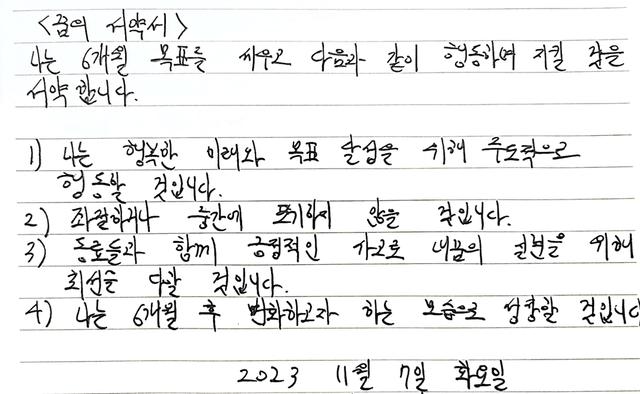 <꿈의 서약서>
나는 6개월 목표를 세우고 다음과 같이 행동하여 지킬 것을
서약합니다.
1) 나는 행복한 미래와 목표 달성을 위해 주도적으로
행동할 것입니다.
2) 좌절하거나 중간에 포기하지 않을 것입니다.
3) 동료들과 함께 긍정적인 사고로 내꿈의 실현을 위해
최선을 다할 것입니다.
4) 나는 6개월 후 변화하고자 하는 모습으로 성장할 것입니다
2023 11월 7일 화요일